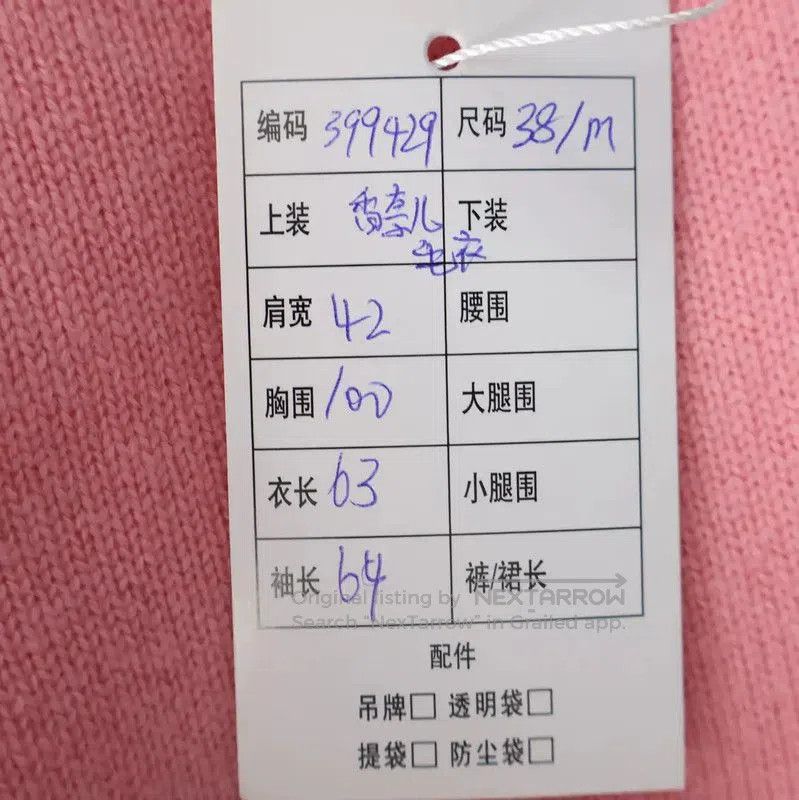 编码 399429 尺码 38/m
上装 香奈儿 下装
毛衣
肩宽 42 腰围
胸围 100 大腿围
衣长 63 小腿围
袖长 64 裤/裙长
Original listing by NEXTARROW
Search "NexTarrow" in Grailed app.
配件
吊牌□ 透明袋□
提袋□ 防尘袋□